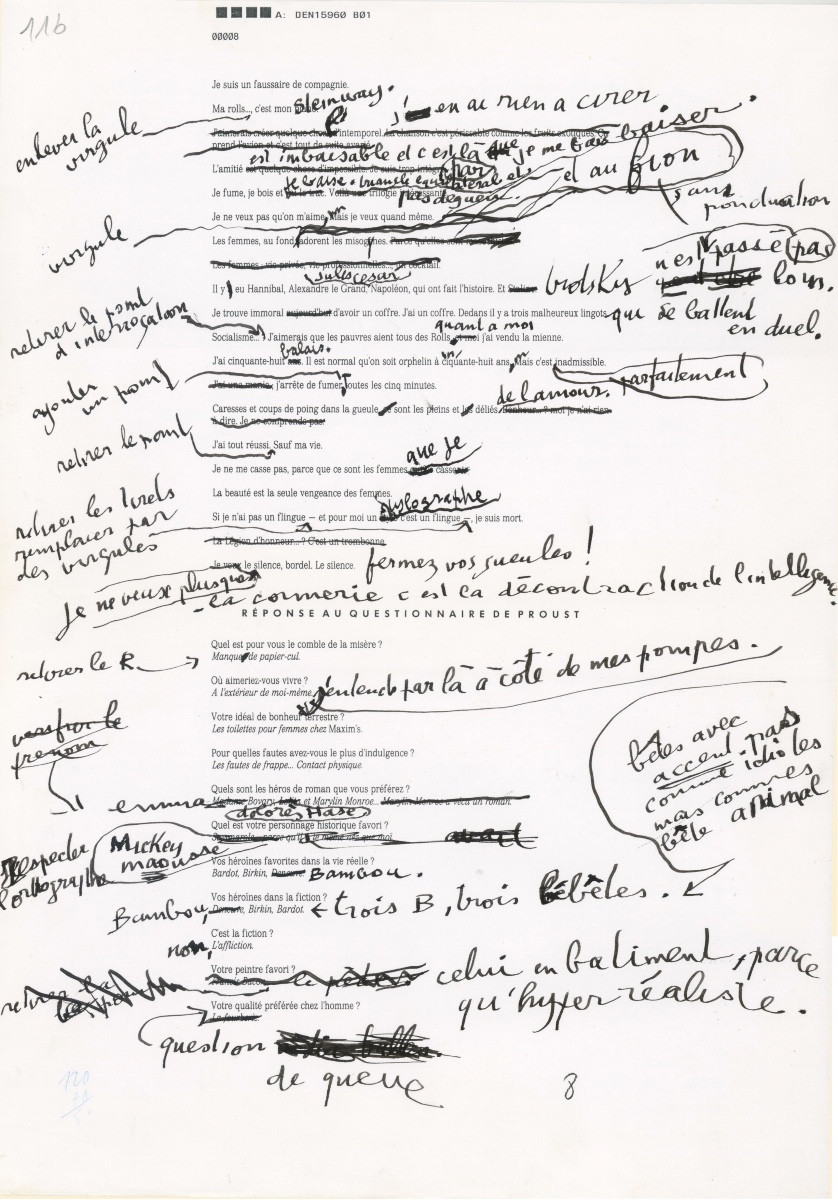 116
A: DEN15960 B01
00008
Je suis un faussaire de compagnie.
Steinway.
Ma rolls..., c'est mon
j'en ai rien à cirer
enlever la
virgule
J'aimerais créer quelque chose d'intemporel. La chanson c'est périssable comme les fruits exotiques.
prend l'avion et c'est tout de suite avarié.
est imbaisable et c'est là que je me fais baiser.
L'amitié est quelque chose d'impossible. Je suis trop
par
et au fion
Je fume, je bois et je baise. triangle équilatéral et
Voilà une trilogie intéressante.
pas dégueu.
sans
ponctuation
Je ne veux pas qu'on m'aime, Mais je veux quand même.
virgule
Les femmes, au fond adorent les misogynes. Parce qu'elles sont
Les femmes : vie privée, vie professionnelle..., un cocktail.
Jules César
n'est passé pas
loin.
Il y eu Hannibal, Alexandre le Grand, Napoléon, qui ont fait l'histoire. Et Staline
trotskys
Je trouve immoral aujourd'hui d'avoir un coffre. J'ai un coffre. Dedans il y a trois malheureux lingots
qui se battent
en duel.
retirer le point
d'interrogation
quant à moi
Socialisme... J'aimerais que les pauvres aient tous des Rolls, et moi j'ai vendu la mienne.
balais.
J'ai cinquante-huit ans. Il est normal qu'on soit orphelin à cinquante-huit ans, Mais c'est inadmissible.
parfaitement
ajouter
un point
J'ai une manie, j'arrête de fumer toutes les cinq minutes.
de l'amour.
Caresses et coups de poing dans la gueule, ce sont les pleins et les déliés. Bonheur...? moi je n'ai rien
à dire. Je ne comprends pas
retirer le point
J'ai tout réussi. Sauf ma vie.
que je
Je ne me casse pas, parce que ce sont les femmes
La beauté est la seule vengeance des femmes.
stylographe
Si je n'ai pas un flingue — et pour moi un c'est un flingue —, je suis mort.
retirer les tirets
remplacer par
des virgules
La Légion d'honneur...? C'est un trombone.
Je veux le silence, bordel. Le silence.
fermez vos gueules !
Je ne veux plus que
- la connerie c'est la décontraction de l'intelligence.
RÉPONSE AU QUESTIONNAIRE DE PROUST
Quel est pour vous le comble de la misère ?
Manque de papier-cul.
retirer le R
Où aimeriez-vous vivre ?
A l'extérieur de moi-même,
j'entends par là à côté de mes pompes.
Votre idéal de bonheur terrestre ?
Les toilettes pour femmes chez Maxim's.
vérifier le
prénom
Pour quelles fautes avez-vous le plus d'indulgence ?
Les fautes de frappe... Contact physique.
bêtes avec
accent pas
comme idiotes
mais comme
bête animal
Quels sont les héros de roman que vous préférez ?
emma
Madame Bovary, Lolita et Marylin Monroe... Marylin Monroe a vécu un roman.
dolorès Haze
Quel est votre personnage historique favori ?
avant
respecter
l'orthographe
Mickey
maousse
Vos héroïnes favorites dans la vie réelle ?
Bardot, Birkin, Deneuve. Bambou.
Vos héroïnes dans la fiction ?
Bambou, Deneuve, Birkin, Bardot.
← trois B, trois bébêtes.
C'est la fiction ?
non, L'affliction.
Votre peintre favori ?
celui en batiment, parce
qu'hyper réaliste.
Votre qualité préférée chez l'homme ?
La fourberie.
question
de queue
8